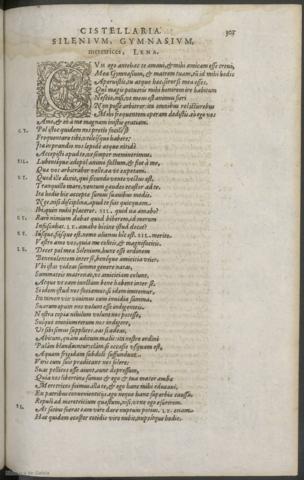 CISTELLARIA.
305
SILENIVM, GYMNASIVM,
meretrices, LENA.
CVm ego antehac te amaui, & mihi amicam esse creui,
Mea Gymnasium, & matrem tuam, tũ id mihi hodie
Aperuistis, tu atque hæc, soror si mea esses,
Qui magis potueritis mihi honorem ire habitum
Nescio, nisi, vt meus est animus fieri
Non posse arbitror: ita omnibus relictis rebus
Mihi frequentem operam dedistis, eò ego vos
Amo, & eò à me magnam inistis gratiam.
GY. Pol isto quidem nos pretio
Frequentare tibi, vtilesque habere:
Ita in prandio nos lepidè atque nitidè
Accepisti apud te, vt semper meminerimus.
SIL. Lubenti'que adepol animo factum, & fiet à me,
Quæ vos arbitrabor velle, ea vt expetam.
LE. Quod ille dixit, qui secundo vento vectus est
Tranquillo mare, ventum gaudeo ecastor ad te.
Ita hodie hic accepta sumus suauibus modis.
Nec, nisi disciplina, apud te fuit quicquam
Ibi, quin mihi placeret. SIL. quid ita amabo?
LE. Raro nimium dabat quod biberem, id merum
Infuscabat. GY. amabo hiccine istud decet?
LE. Iusque, fasque est. nemo alienus hic est. SIL. merito
Vostro amo vos, quia me colitis, & magnificatis.
LE. Decet pol mea Silenium, hunc esse ordinem
Beneuolentem inter se, beneque amicitia vtier:
Vbi istas videas summo genere natas,
Summates matronas, vt amicitiam colunt,
Atque vt eam iunctam bene habent inter se.
Si idem istud nos faciamus, si idem imitemur,
Ita tamen vix viuimus cum inuidia summa.
Suarum opum nos volunt esse indigenteis.
Nostra copia nihilum volunt nos potesse,
Suique omnium rerum nos indigere,
Vt sibi simus supplices. eas si adeas,
Abitum, quàm aditum malis: ita nostro ordini
Palàm blandiuntur: clàm si occasio vsquam est,
Aquam frigidam subdolè suffundunt.
Viris cum suis prædicant nos solere:
Suas pellices esse aiunt, eunt depressum,
Quia nos libertinæ sumus & ego & tua mater ambæ
Meretrices fuimus. illa te, & ego hanc mihi educaui,
Ex patribus conuenticiis. ego neque hanc superbiæ caussa
Repuli ad meretricium quæstum, nisi, vt ne ego esurirem.
SI. At satius fuerat eam viro dare nuptum potius. LE. etiam:
Hæc quidem ecastor cotidie viro nubit, nupsitque hodie.